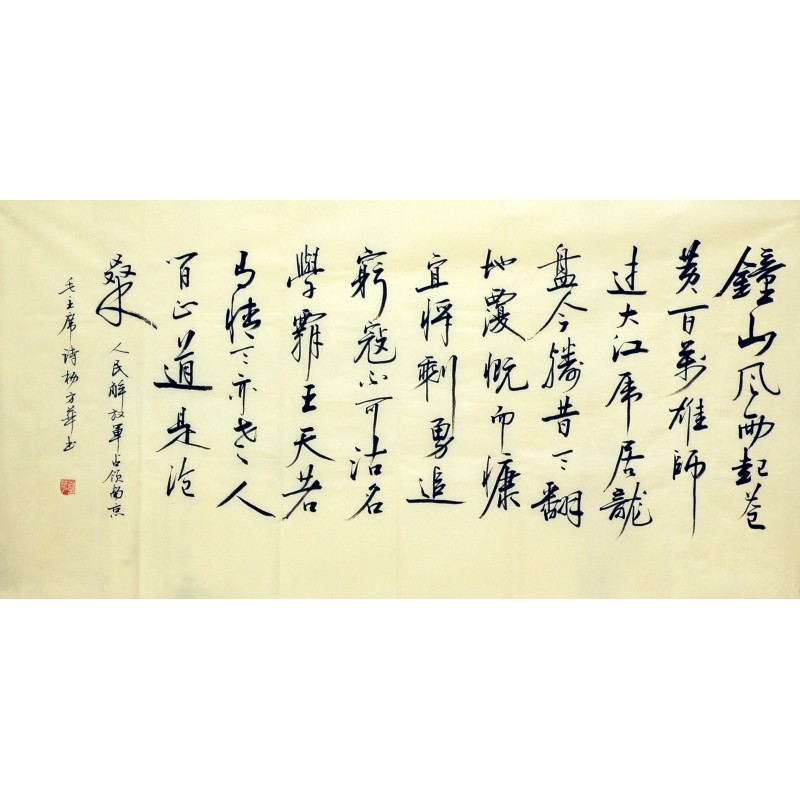 鐘山风雨起苍
黄百萬雄師
过大江虎居龍
盘今勝昔天翻
地覆慨而慷
宜将剩勇追
窮寇不可沽名
學霸王天若
有情天亦老人
间正道是沧
桑
人民解放軍占领南京
毛主席诗杨方華书